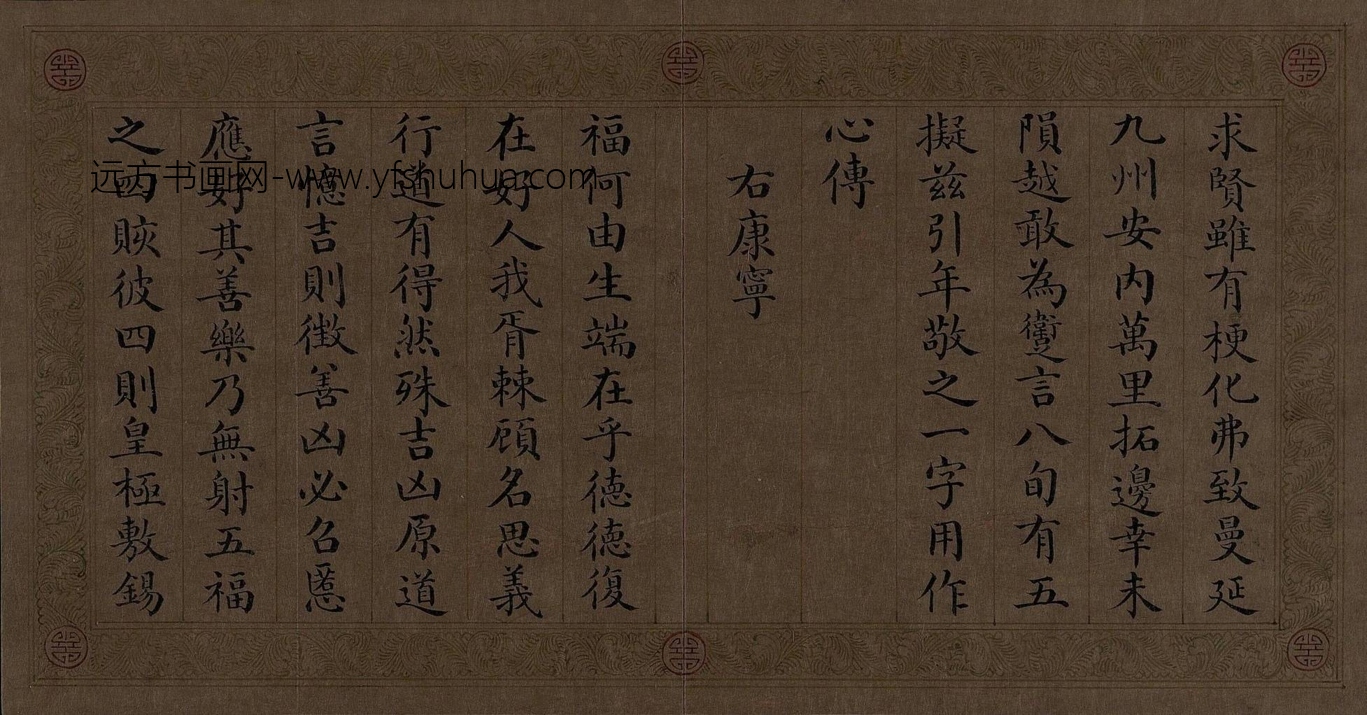 求賢雖有梗化弗致曼延
九州安內萬里拓邊幸未
隕越敢為躗言八旬有五
擬兹引年敬之一字用作
心傳
右康寧
福何由生端在乎德德復
在好人我胥棘顧名思義
行道有得然殊吉凶原道
言德吉則徴善凶必召慝
應好其善樂乃無射五福
之四賅彼四則皇極敷錫
远方书画网-www.yfshuhua.com